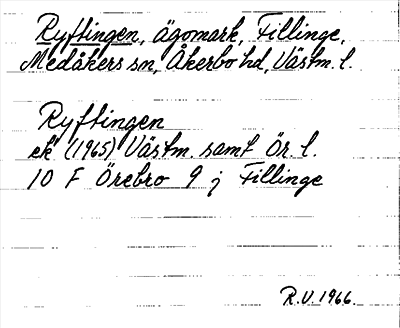 Ryftingen, ägomark, Fillinge,
Medåkers sn, Åkerbo hd, Västm. l.
Ryftingen
ek (1965) Västm. samt Ör. l.
10 F Örebro 9 j Fillinge
R.V. 1966.